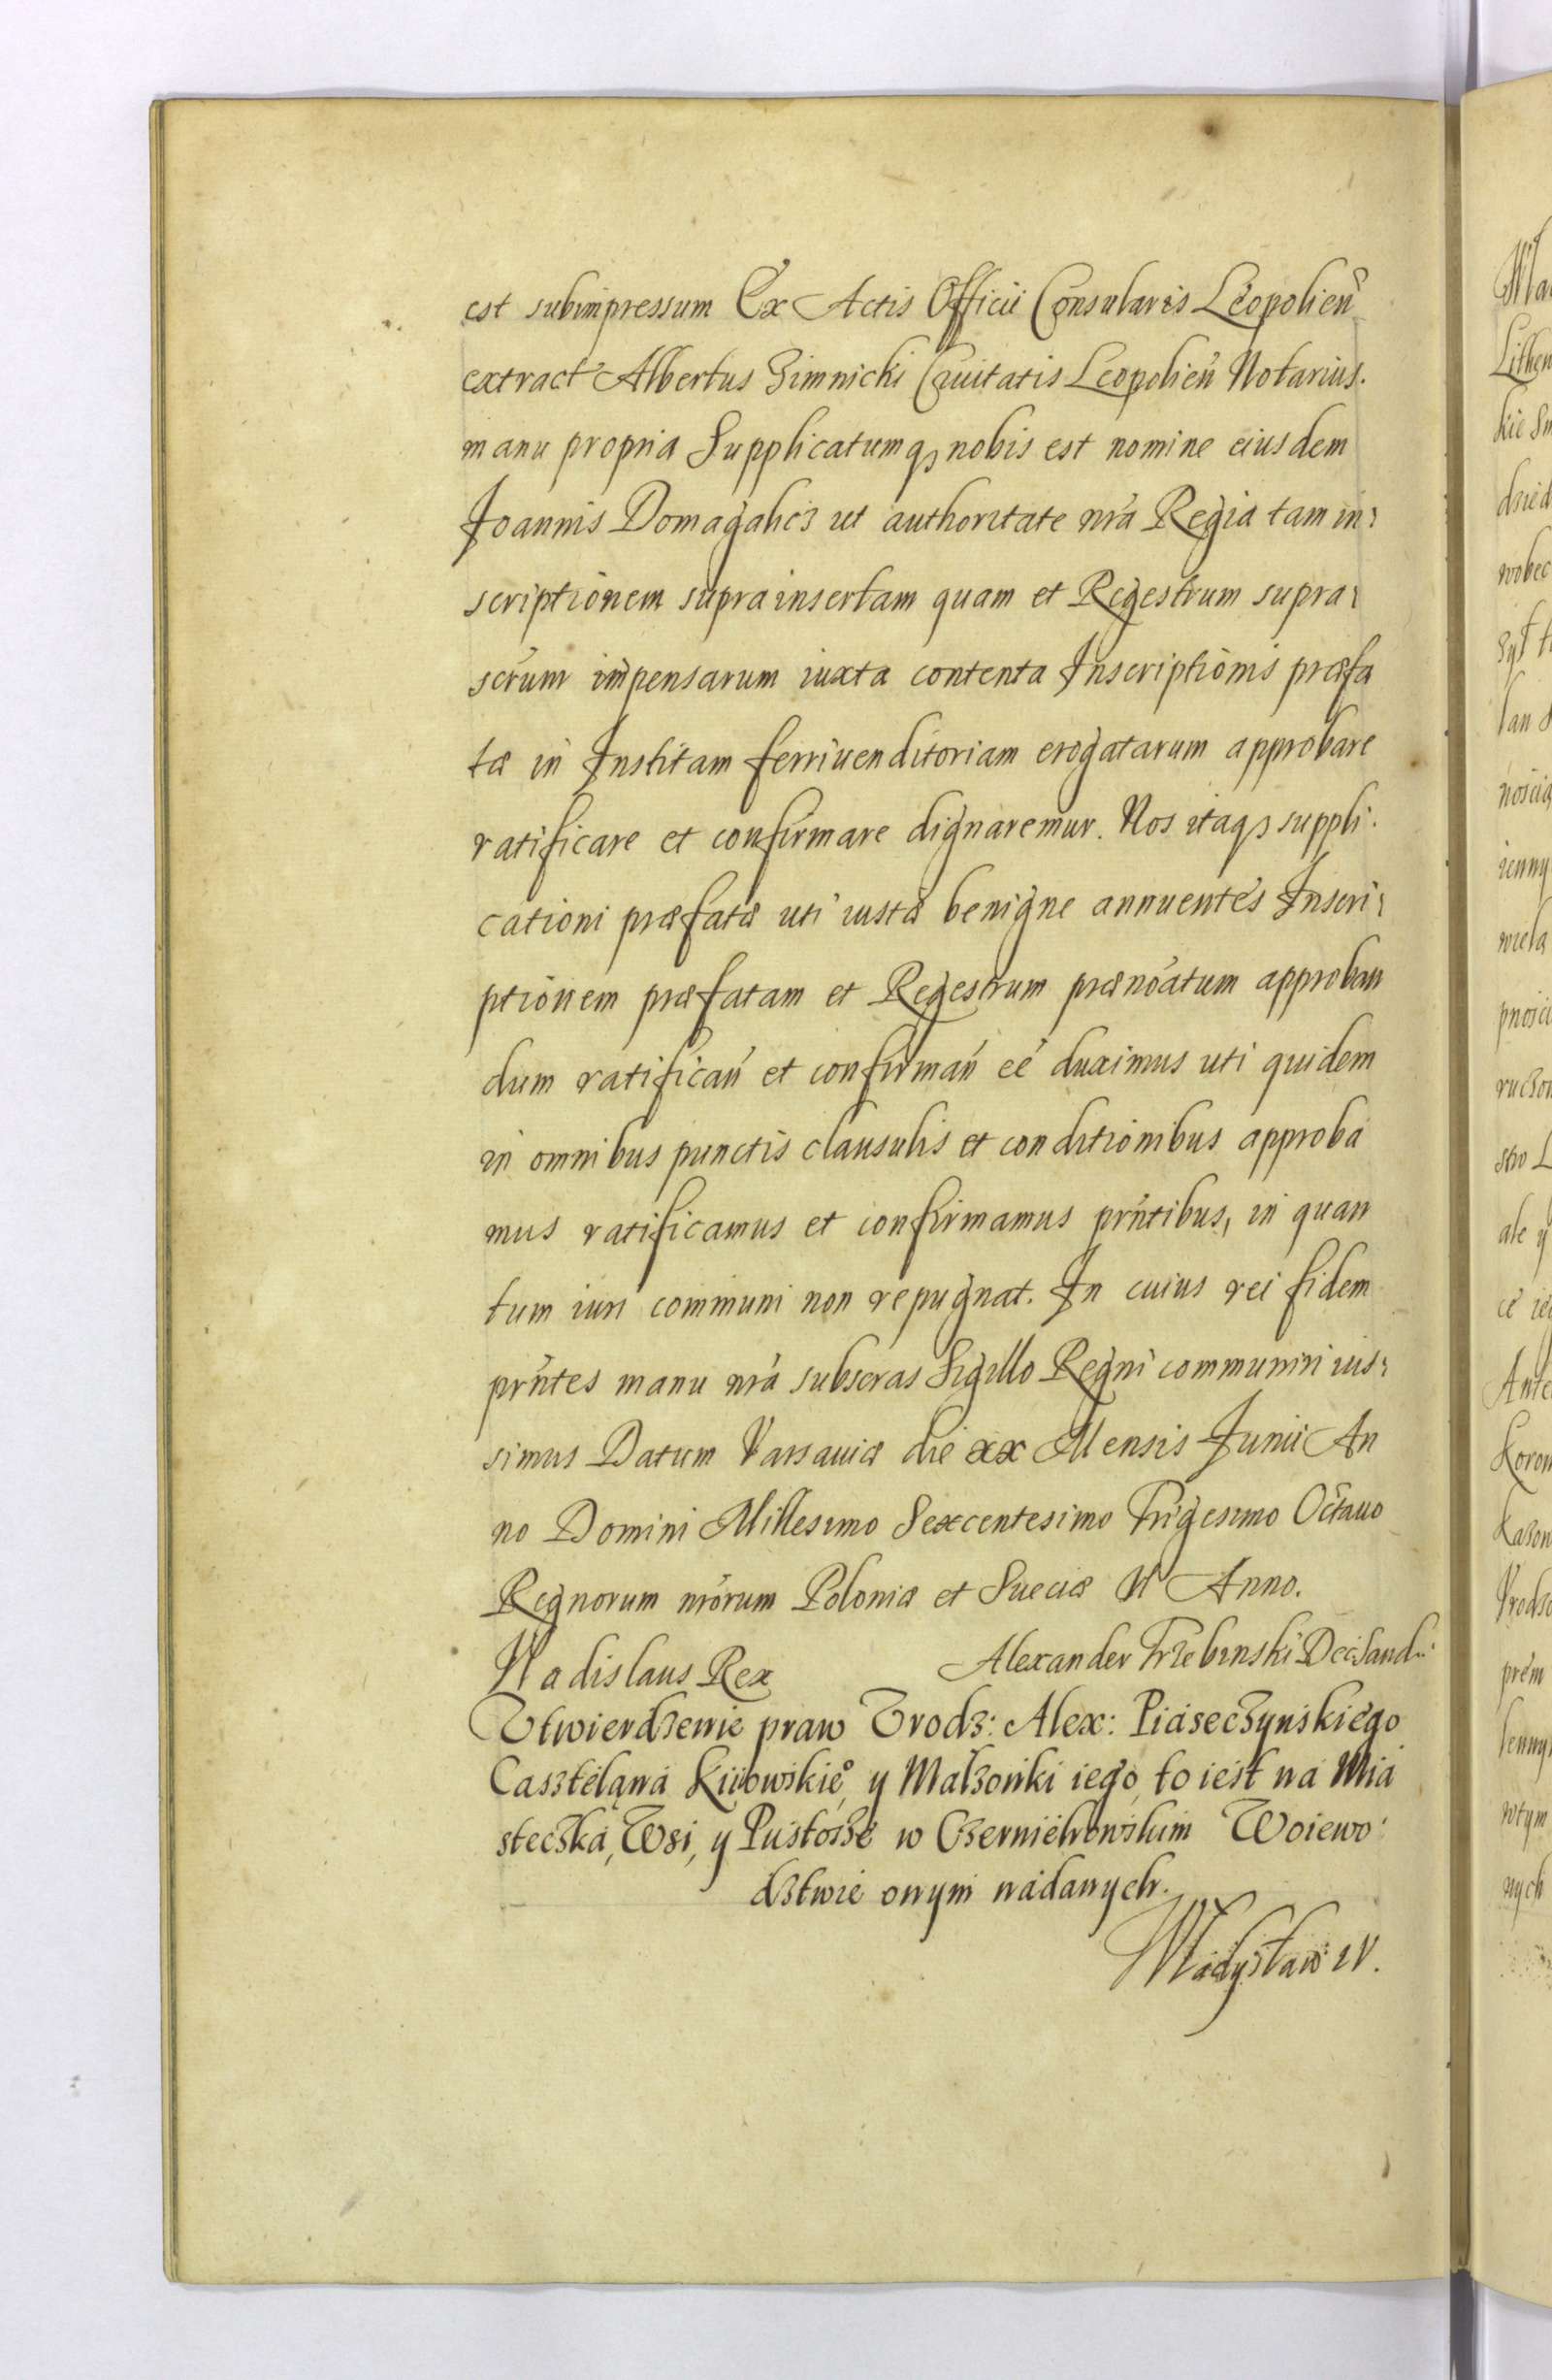 est subimpressum Ex Actis Officii Consularis Leopolien̄
extract Albertus Zimnicki Ciuitatis Leopolien̄ Notarius.
manu propria Supplicatumqꝫ nobis est nomine eiusdem
Joannis Domagalicz ut authoritate nr̄a Regia tam in:
scriptionem suprainsertam quam et Regestrum supra:
scr̄um impensarum iuxta contenta Inscriptionis præfa
tæ in Institam ferriuenditoriam erogatarum approbare
ratificare et confirmare dignaremur. Nos itaqꝫ suppli:
cationi præfatæ uti iustæ benigne annuentes Inscri:
ptionem præfatam et Regestrum prænōatum approban
dum ratifican̄ et confirman̄ eē duximus uti quidem
in omnibus punctis clausulis et conditionibus approba
mus ratificamus et confirmamus prn̄tibus, in quan
tum iuri communi non repugnat. In cuius rei fidem
prn̄tes manu nr̄a subscras Sigillo Regni communiri ius:
simus Datum Varsauiæ die xx Mensis Junii An
no Domini Millesimo Sexcentesimo Trigesimo Octauo
Regnorum nr̄orum Poloniæ et Sueciæ VI Anno.
Vladislaus Rex Alexander Trzebinski
Vtwierdzenie praw Vrodz: Alex: Piaseczynskiego
Casztelana Kiiowskieo, y Małzonki iego, to iest na Mia
steczka, Wsi, y Pustosze w Czerniehowskim Woiewo:
dztwie onym nadanych.
Władysław IV.